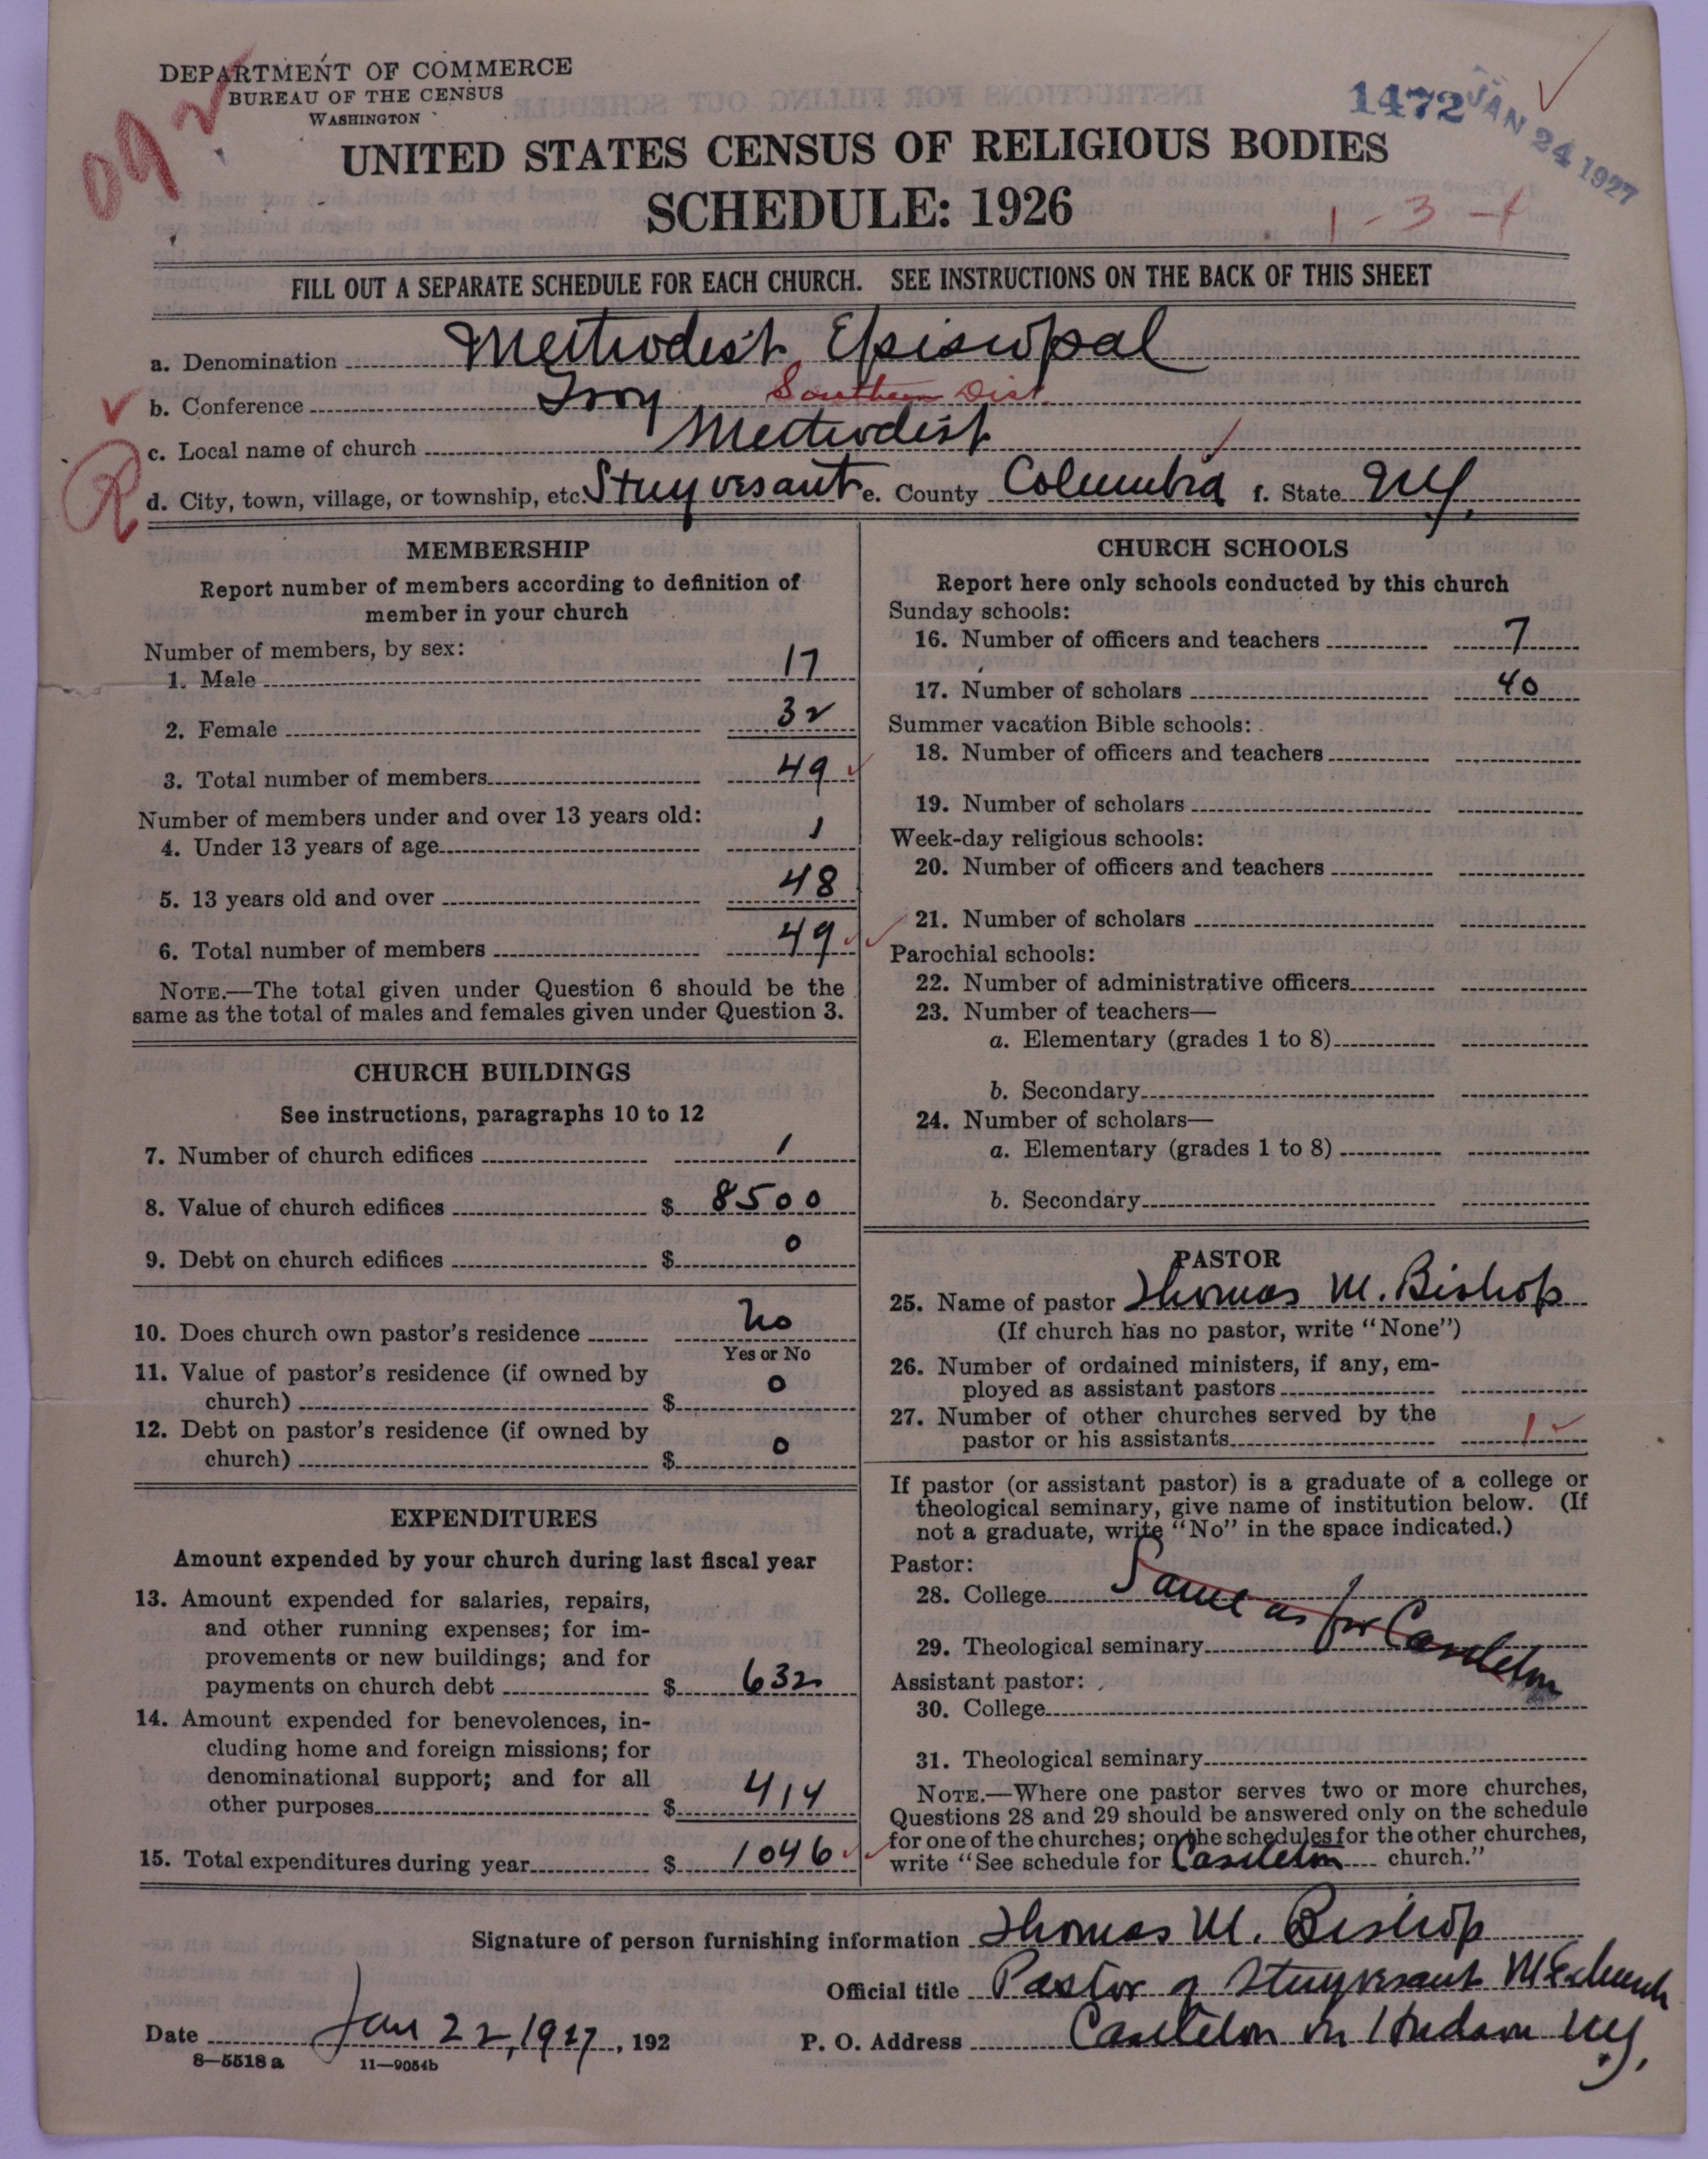 DEPARTMENT OF COMMERCE
BUREAU OF THE CENSUS
WASHINGTON
1472
JAN 24 1927
092
UNITED STATES CENSUS OF RELIGIOUS BODIES
SCHEDULE: 1926
1-3-1
FILL OUT A SEPARATE SCHEDULE FOR EACH CHURCH. SEE INSTRUCTIONS ON THE BACK OF THIS SHEET
a. Denomination Methodist Episcopal
b. Conference Troy Southern Dist.
c. Local name of church Methodist
R
d. City, town, village, or township, etc. Stuyvesant e. County Columbia f. State N.Y.
MEMBERSHIP
Report number of members according to definition of
member in your church
Number of members, by sex:
1. Male 17
2. Female 32
3. Total number of members 49
Number of members under and over 13 years old:
4. Under 13 years of age 1
5. 13 years old and over 48
6. Total number of members 49
NOTE.—The total given under Question 6 should be the
same as the total of males and females given under Question 3.
CHURCH BUILDINGS
See instructions, paragraphs 10 to 12
7. Number of church edifices 1
8. Value of church edifices $ 8500
9. Debt on church edifices $ 0
10. Does church own pastor's residence No
Yes or No
11. Value of pastor's residence (if owned by
church) $ 0
12. Debt on pastor's residence (if owned by
church) $ 0
EXPENDITURES
Amount expended by your church during last fiscal year
13. Amount expended for salaries, repairs,
and other running expenses; for im-
provements or new buildings; and for
payments on church debt $ 632
14. Amount expended for benevolences, in-
cluding home and foreign missions; for
denominational support; and for all
other purposes $ 414
15. Total expenditures during year $ 1046
CHURCH SCHOOLS
Report here only schools conducted by this church
Sunday schools:
16. Number of officers and teachers 7
17. Number of scholars 40
Summer vacation Bible schools:
18. Number of officers and teachers
19. Number of scholars
Week-day religious schools:
20. Number of officers and teachers
21. Number of scholars
Parochial schools:
22. Number of administrative officers
23. Number of teachers—
a. Elementary (grades 1 to 8)
b. Secondary
24. Number of scholars—
a. Elementary (grades 1 to 8)
b. Secondary
PASTOR
25. Name of pastor Thomas M. Bishop
(If church has no pastor, write "None")
26. Number of ordained ministers, if any, em-
ployed as assistant pastors
27. Number of other churches served by the
pastor or his assistants 1
If pastor (or assistant pastor) is a graduate of a college or
theological seminary, give name of institution below. (If
not a graduate, write "No" in the space indicated.)
Pastor:
28. College Same as for Castleton
29. Theological seminary
Assistant pastor:
30. College
31. Theological seminary
NOTE.—Where one pastor serves two or more churches,
Questions 28 and 29 should be answered only on the schedule
for one of the churches; on the schedules for the other churches,
write "See schedule for Castleton church."
Signature of person furnishing information Thomas M. Bishop
Official title Pastor of Stuyvesant M E church
Date Jan 22, 1927, 192
P. O. Address Castleton on Hudson N.Y.
8—5518 a 11—9054b